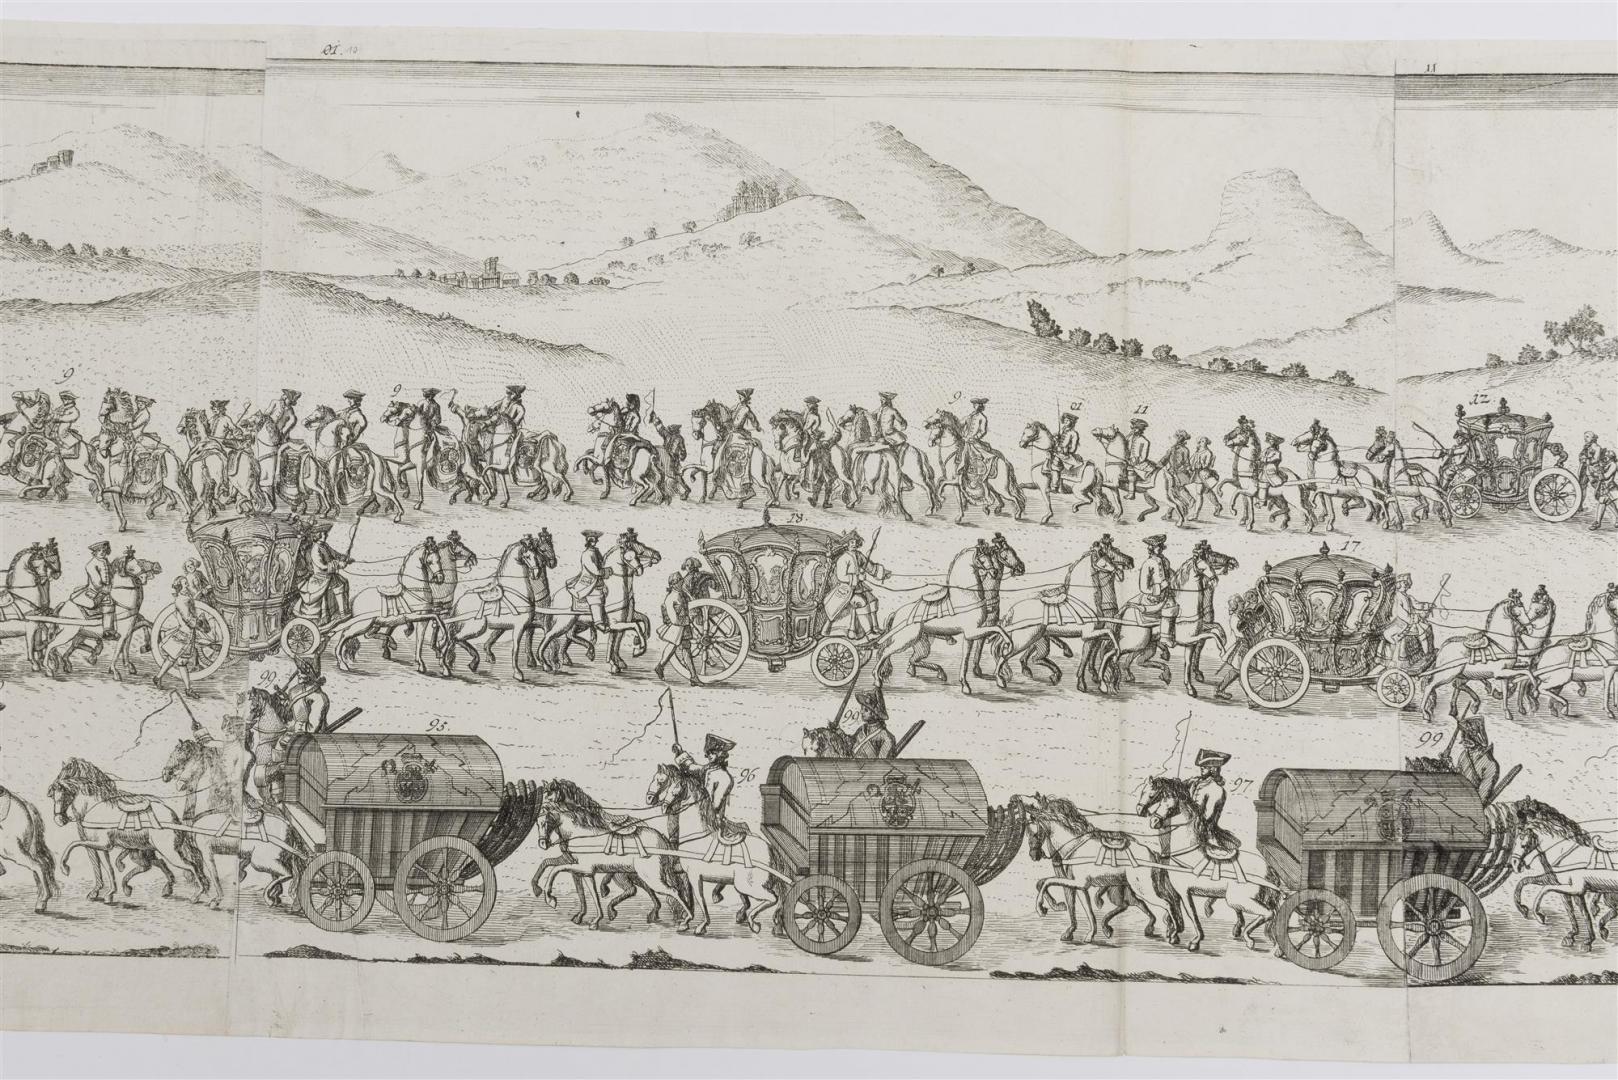 01. 10
11
9
9
9
10
11
12
18
17
99
95
96
99
97
99